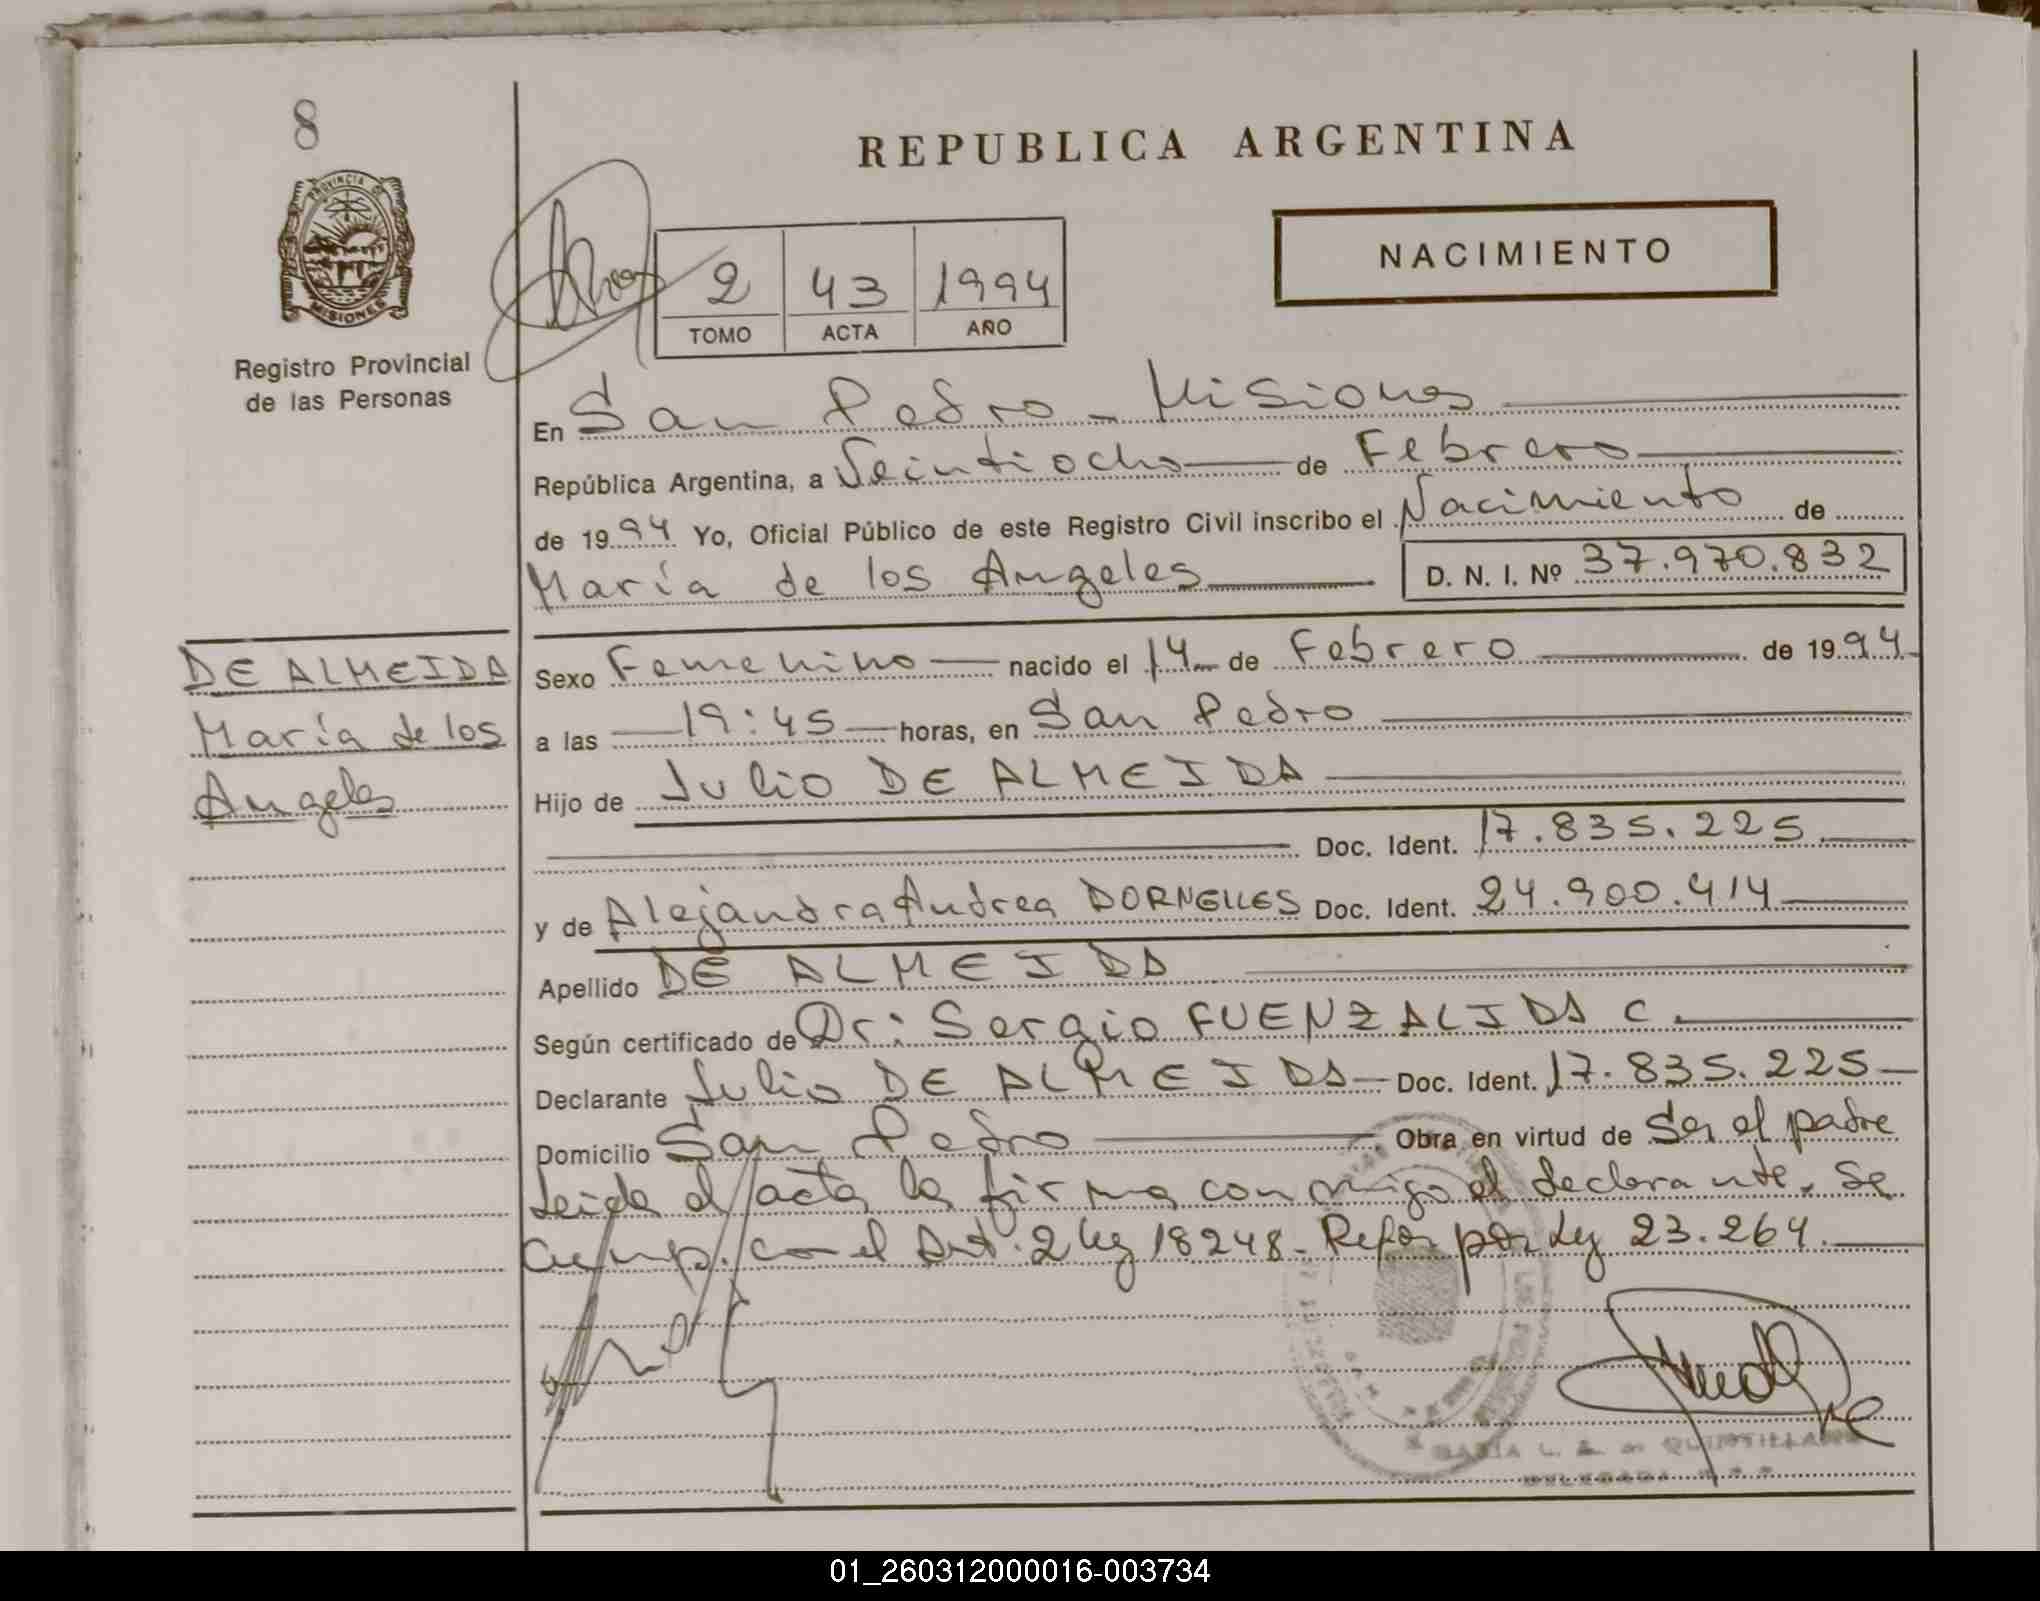 8
REPUBLICA ARGENTINA
PROVINCIA DE
MISIONES
NACIMIENTO
2 43 1994
TOMO ACTA AÑO
Registro Provincial
de las Personas
En San Pedro - Misiones
República Argentina, a Veintiocho de Febrero
de 1994 Yo, Oficial Público de este Registro Civil inscribo el Nacimiento de
María de los Angeles D. N. I. Nº 37.970.832
DE ALMEIDA
María de los
Angeles
Sexo Femenino nacido el 14 de Febrero de 1994
a las 19:45 horas, en San Pedro
Hijo de Julio DE ALMEIDA
Doc. Ident. 17.835.225
y de Alejandra Andrea DORNELLES Doc. Ident. 24.900.414
Apellido DE ALMEIDA
Según certificado de Dr: Sergio FUENZALIDA C.
Declarante Julio DE ALMEIDA Doc. Ident. 17.835.225
Domicilio San Pedro Obra en virtud de Ser el padre
Leida el acta la firma conmigo el declarante. Se
cump. con el Art. 2 Ley 18248 - Refor por Ley 23.264.
QUINTILLANO
DELEGADA
01_260312000016-003734